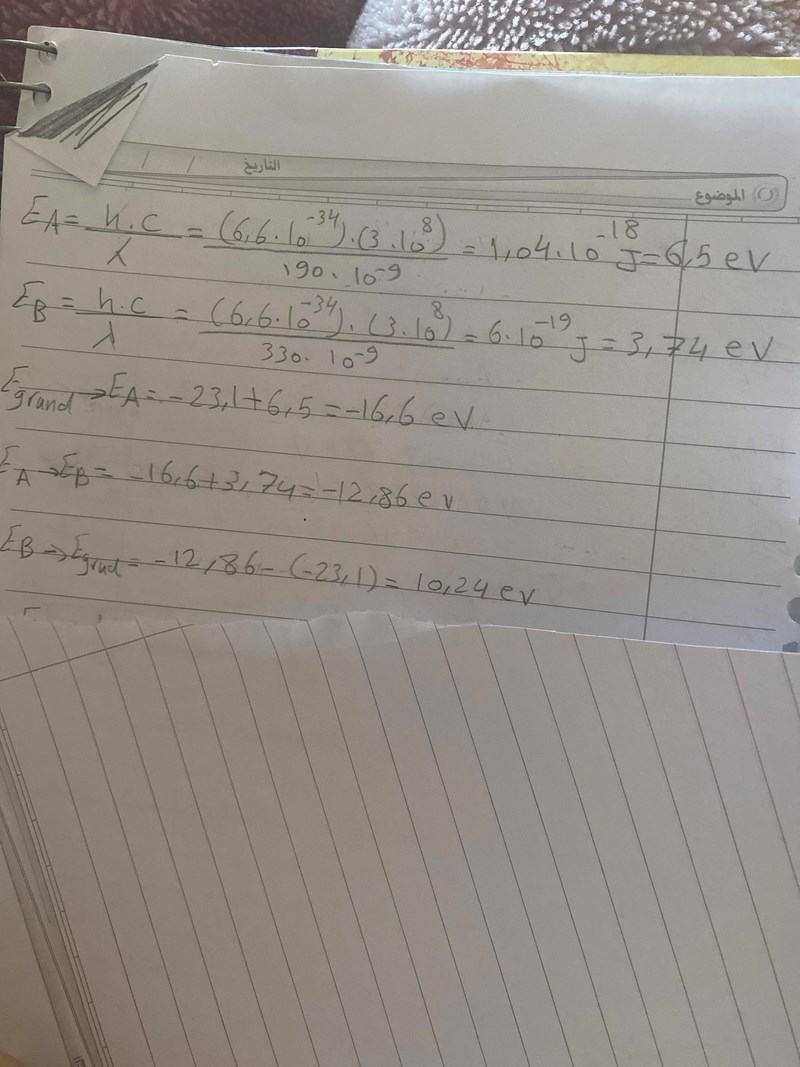 التاريخ / /
الموضوع
E_A = h.c / λ = (6,6.10^-34).(3.10^8) / 190.10^-9 = 1,04.10^-18 J = 6,5 eV
E_B = h.c / λ = (6,6.10^-34).(3.10^8) / 330.10^-9 = 6.10^-19 J = 3,74 eV
E_grund → E_A = -23,1+6,5 = -16,6 eV
E_A → E_B = -16,6+3,74 = -12,86 eV
E_B → E_grud = -12,86-(-23,1) = 10,24 eV